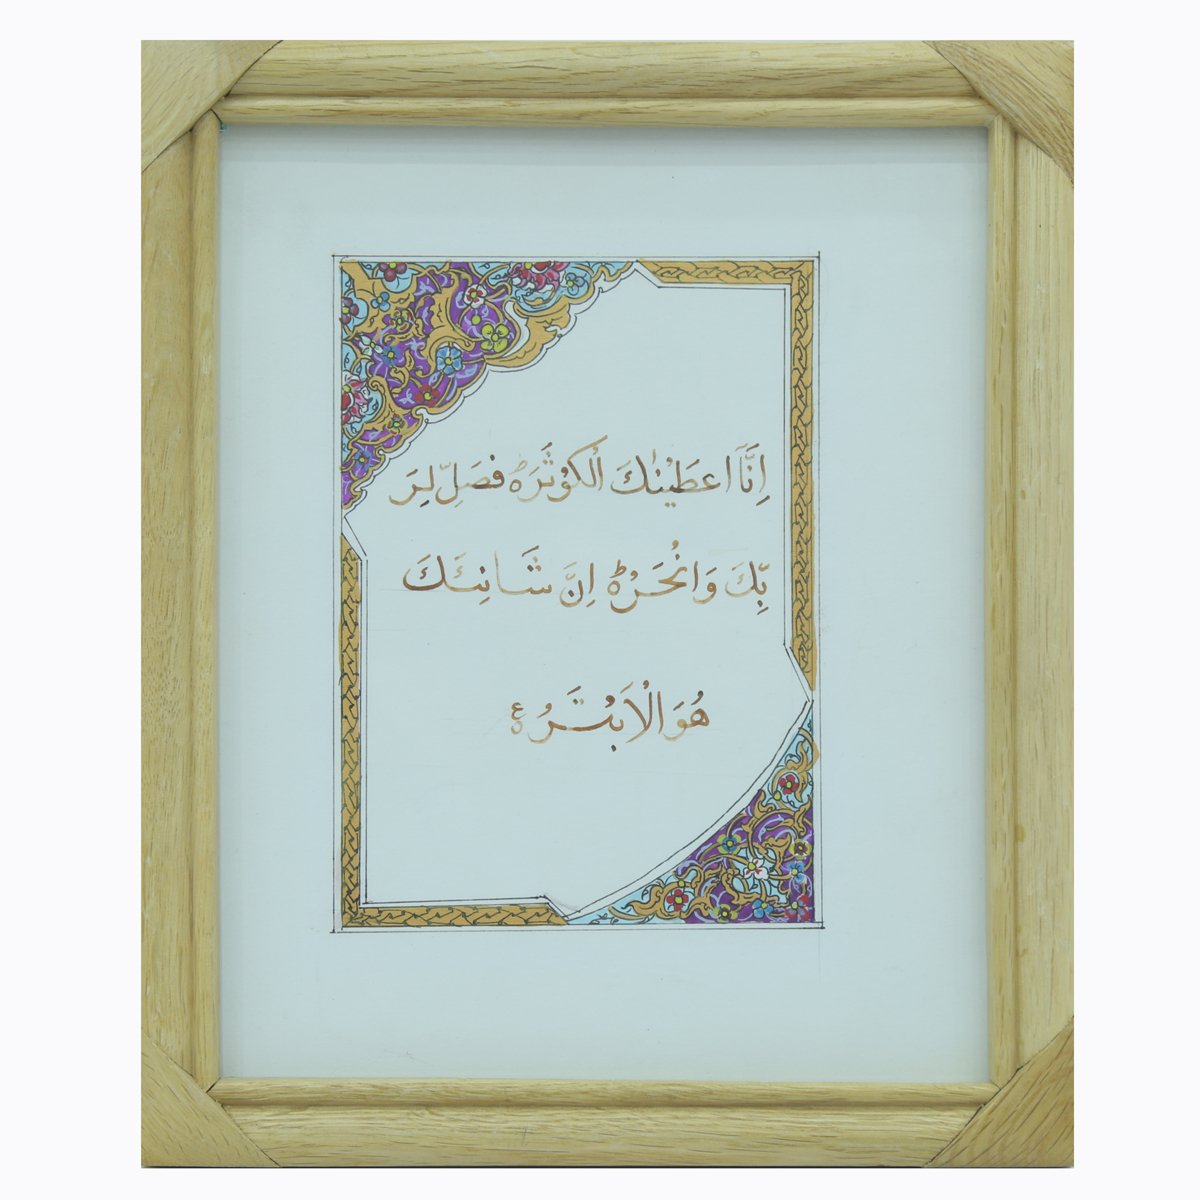 اِنَّاَ اعطَيْنٰكَ الْكَوْثَرَ۝ فصَلِّ لِرَ
بِّكَ وَانْحَرْ۝ اِنَّ شَانِئَكَ
هُوَ الْاَبْتَرُ۝ ع